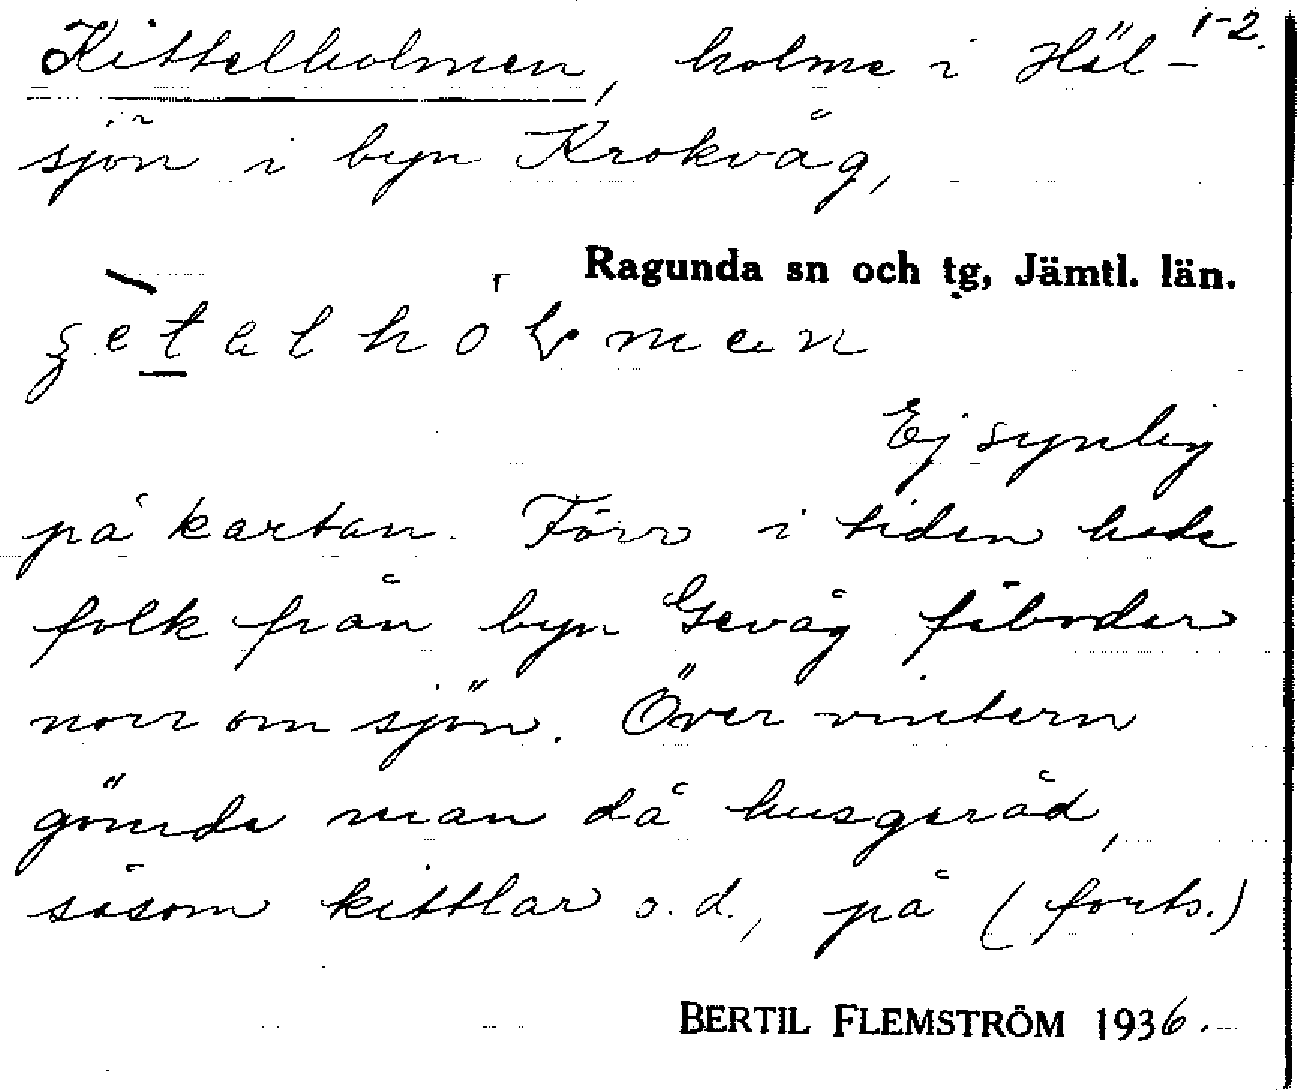 Kittelholmen, holme i Häl- 1-2.
sjön i byn Krokvåg,
Ragunda sn och tg, Jämtl. län.
Ej synlig
på kartan. Förr i tiden hade
folk från byn Gevåg fäbodar
norr om sjön. Över vintern
gömde man då husgeråd,
såsom kittlar o.d., på (forts.)
BERTIL FLEMSTRÖM 1936.